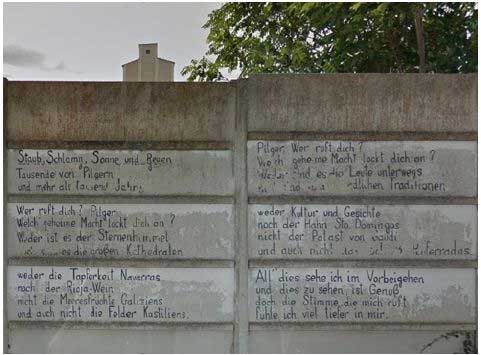 Staub, Schlamm, Sonne und Regen
Tausende von Pilgern
und mehr als tausend Jahre
Wer ruft dich? Pilger
Welch geheime Macht lockt dich an?
Weder ist es der Sternenhimmel
es die großen Kathedralen
weder die Tapferkeit Navarras
noch der Rioja-Wein
nicht die Meeresfrüchte Galiziens
und auch nicht die Felder Kastiliens.
Pilger, Wer ruft dich?
Welch geheime Macht lockt dich an?
Weder sind es die Leute unterwegs
ländlichen Traditionen
weder Kultur und Gesichte
noch der Hahn Sto. Domingos
nicht der Palast von Gaudi
und auch nicht das Ponferradas
All' dies sehe ich im Vorbeigehen
und dies zu sehen, ist Genuß
doch die Stimme, die mich ruft
fühle ich viel tiefer in mir.